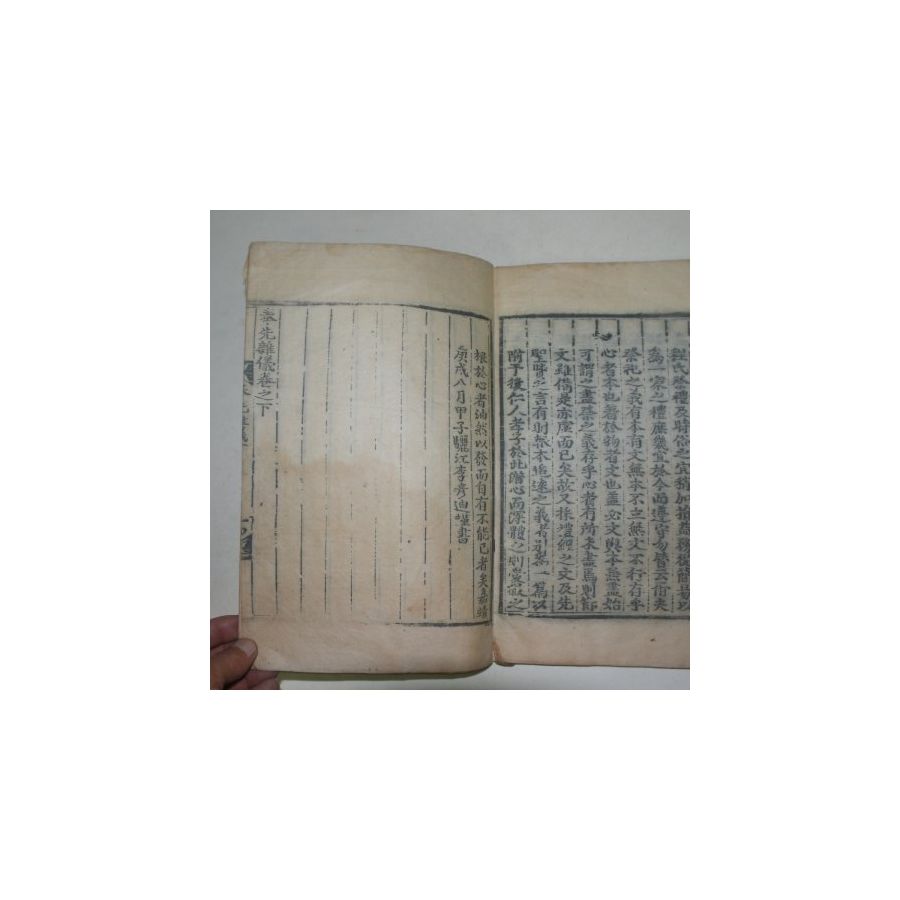 程氏祭禮及時俗之宜稍加損益務從簡易以
爲一家之禮庶幾宜於今而遵守勿替云爾夫
祭祀之義有本有文無本不立無文不行存乎
心者本也著於物者文也盖必文與本兼盡始
可謂之盡祭之義存乎心者有所未盡焉則節
文雖備是亦虛而已矣故又採禮經之文及先
聖賢之言有財祭本追遠之義者別爲一篇以
附于後仁人孝子於此潛心而深體之則愛敬之
根於心者油然以發而自有不能已者矣嘉靖
庚戌八月甲子驪江李彦迪謹書
奉先雜儀卷之下